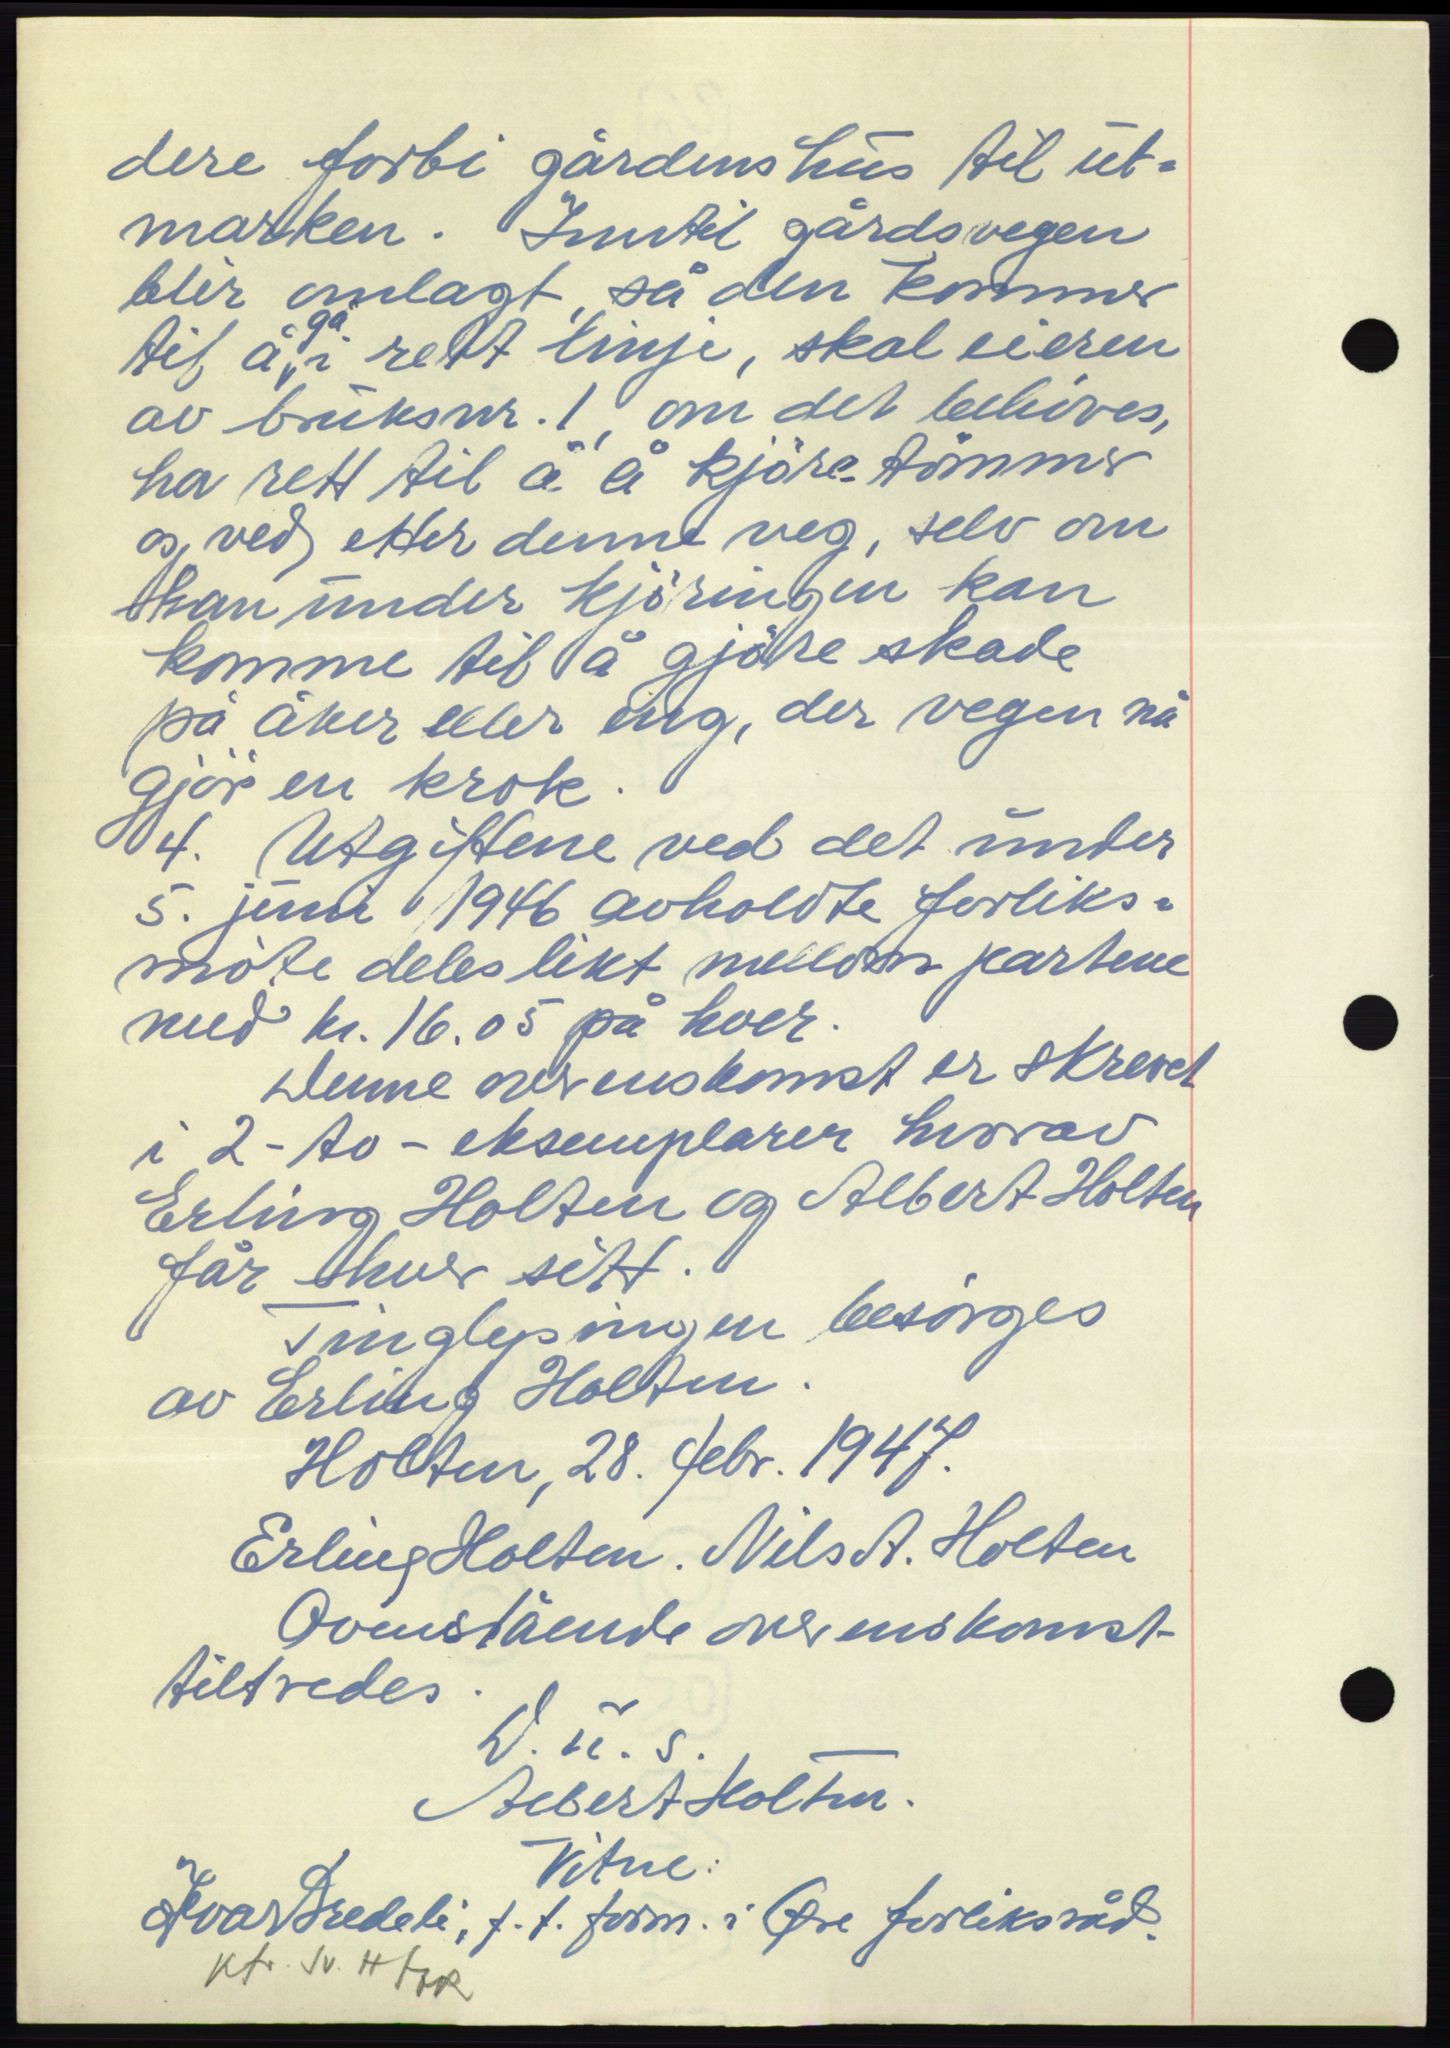 dere forbi gårdens hus til ut-
marken. Inntil gårdsvegen
blir omlagt, så den kommer
til å gå i rett linje, skal eieren
av bruksnr. 1, om det behøves,
ha rett til å å kjöre tömmer
og ved etter denne veg, selv om
han under kjöringen kan
komme til å gjöre skade
på åker eller eng, der vegen nå
gjör en krok.
4. Utgiftene ved det under
5. juni 1946 avholdte forliks-
möte deles likt mellom partene
med kr. 16.05 på hver.
Denne overenskomst er skrevet
i 2-to-eksemplarer hvorav
Erling Holten og Albert Holten
får hver sitt.
Tinglysingen besörges
av Erling Holten.
Holten, 28. febr. 1947.
Erling Holten. Nils A. Holten
Ovenstående overenskomst
tiltredes.
D. u. s.
Albert Holten.
Vitne:
Ivar Bredeli, f. t. form. i Øre forliksråd.